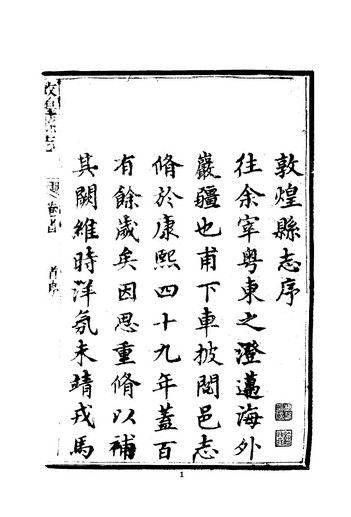 敦煌縣志序
往余宰粵東之澄邁海外
巖疆也甫下車披閱邑志
脩於康熙四十九年蓋百
有餘歲矣因思重脩以補
其闕維時洋氛未靖戎馬
卷首
1